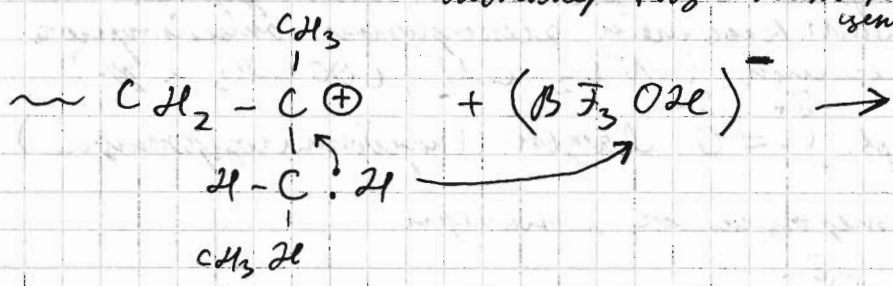 цеп
CH₃
~ CH₂ - C ⊕ + (BF₃OH)⁻ →
H - C : H
CH₃ H